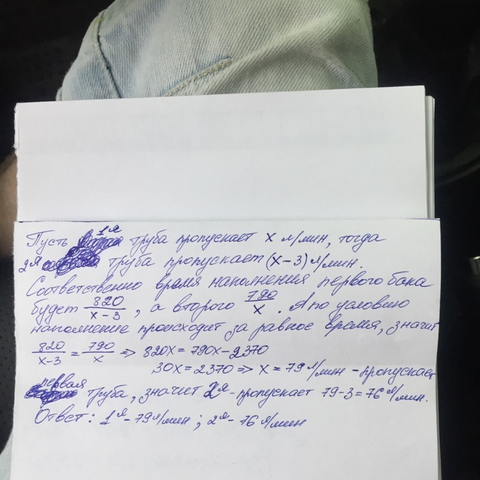 Пусть 1я труба пропускает x л/мин, тогда
2я труба пропускает (x-3) л/мин.
Соответственно время наполнения первого бака
будет 820/x-3, а второго 790/x. А по условию
наполнение происходит за равное время, значит
820/x-3 = 790/x => 820x = 790x - 2370
30x = 2370 => x = 79 л/мин - пропускает
первая труба, значит 2я - пропускает 79-3=76 л/мин.
Ответ: 1я - 79 л/мин; 2я - 76 л/мин